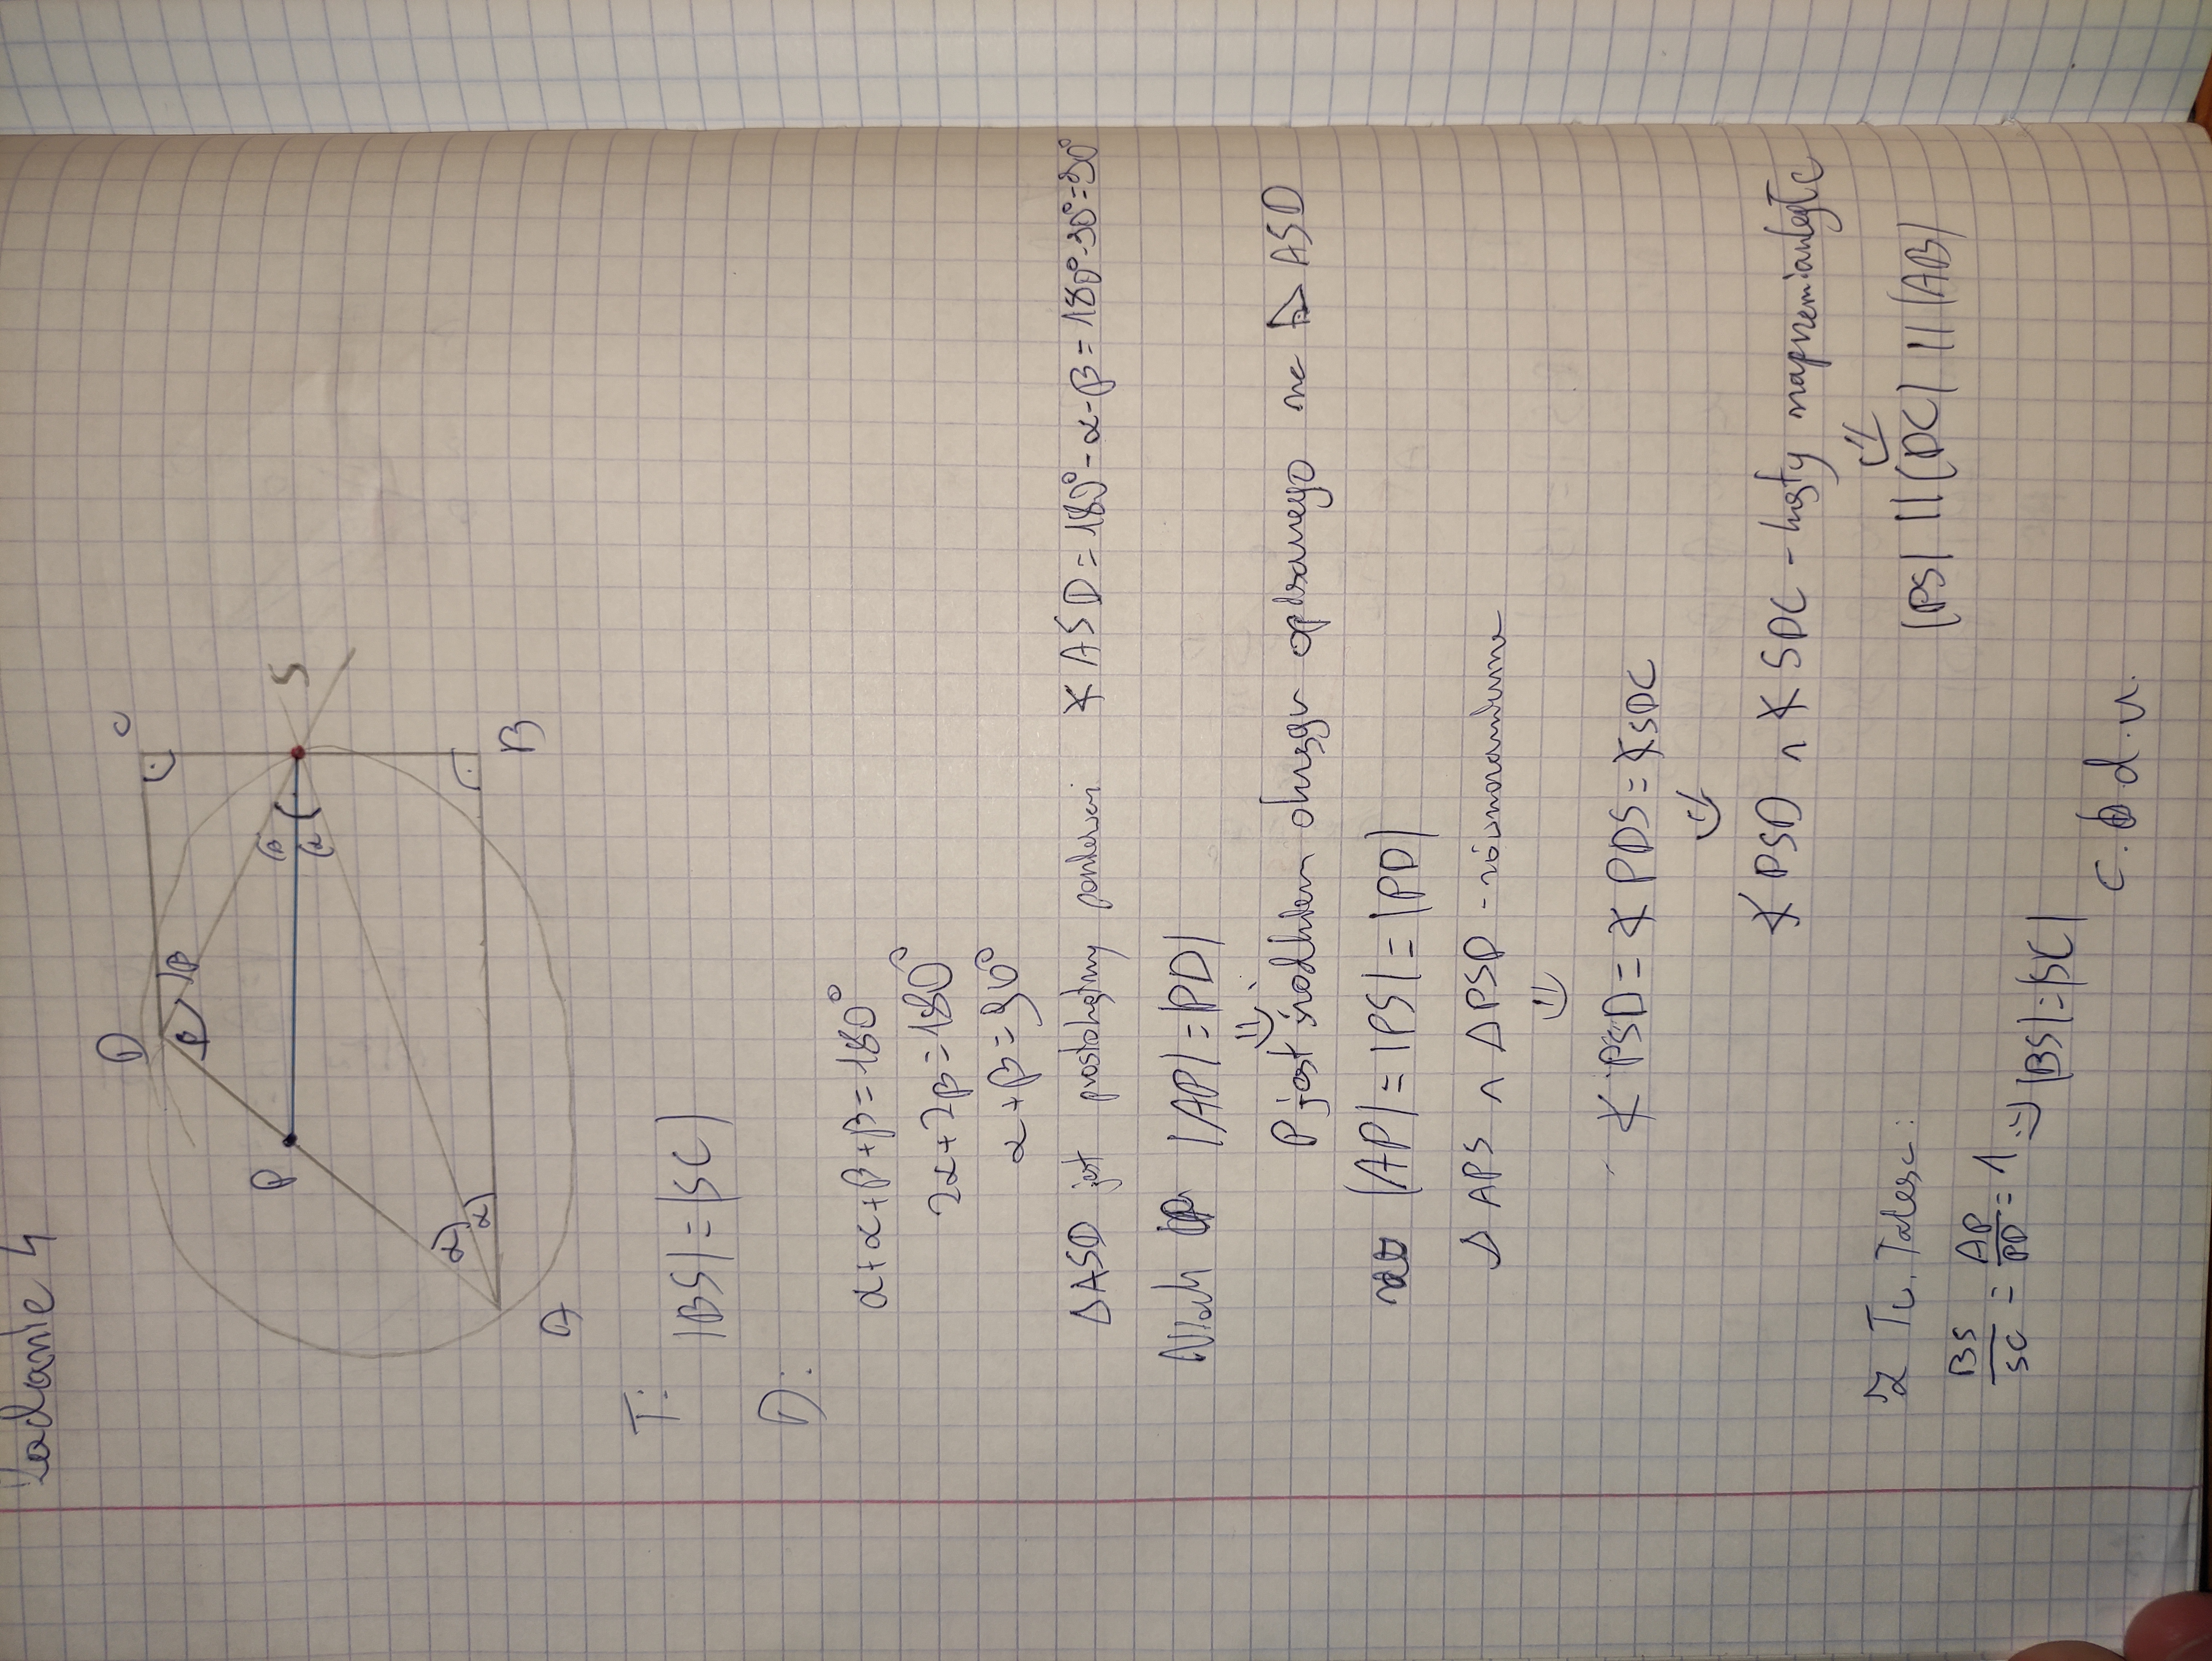 Zadanie 4
D
C
P
β
β
β
α
S
α
α
A
B
T:
|BS| = |SC|
D:
α+α+β+β=180°
2α+2β=180°
α+β=90°
ΔASD jest prostokątny ponieważ ∢ASD=180°-α-β=180°-90°=90°
Niech |AP|=|PD|
⇓
P jest środkiem okręgu opisanego na Δ ASD
|AP|=|PS|=|PD|
Δ APS ∧ ΔPSD - równoramienne
⇓
∢PSD=∢PDS=∢SDC
⇓
∢PSD ∧ ∢SDC - kąty naprzemianległe
⇓
|PS| || |DC| || |AB|
Z Tw. Talesa:
BS/SC = AP/PD = 1 => |BS|=|SC|
c. d. u.